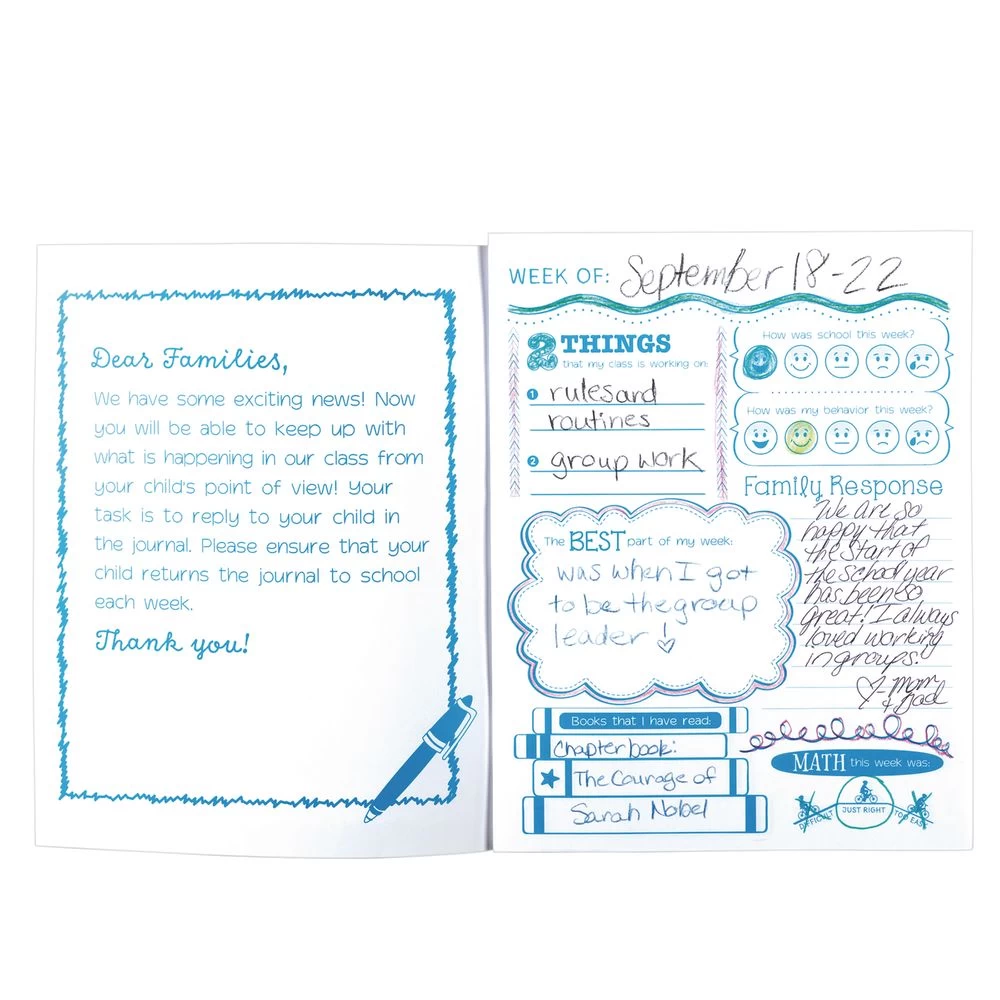 Dear Families,
We have some exciting news! Now
you will be able to keep up with
what is happening in our class from
your child's point of view! Your
task is to reply to your child in
the journal. Please ensure that your
child returns the journal to school
each week.
Thank you!
WEEK OF: September 18-22
2 THINGS
that my class is working on:
1 rules and
routines
2 group work
How was school this week?
How was my behavior this week?
The BEST part of my week:
was when I got
to be the group
leader!
Family Response
We are so
happy that
the start of
the school year
has been so
great! I always
loved working
in groups!
- Mom
+ Dad
Books that I have read:
Chapter book:
The Courage of
Sarah Nobel
MATH this week was:
DIFFICULT
JUST RIGHT
TOO EASY